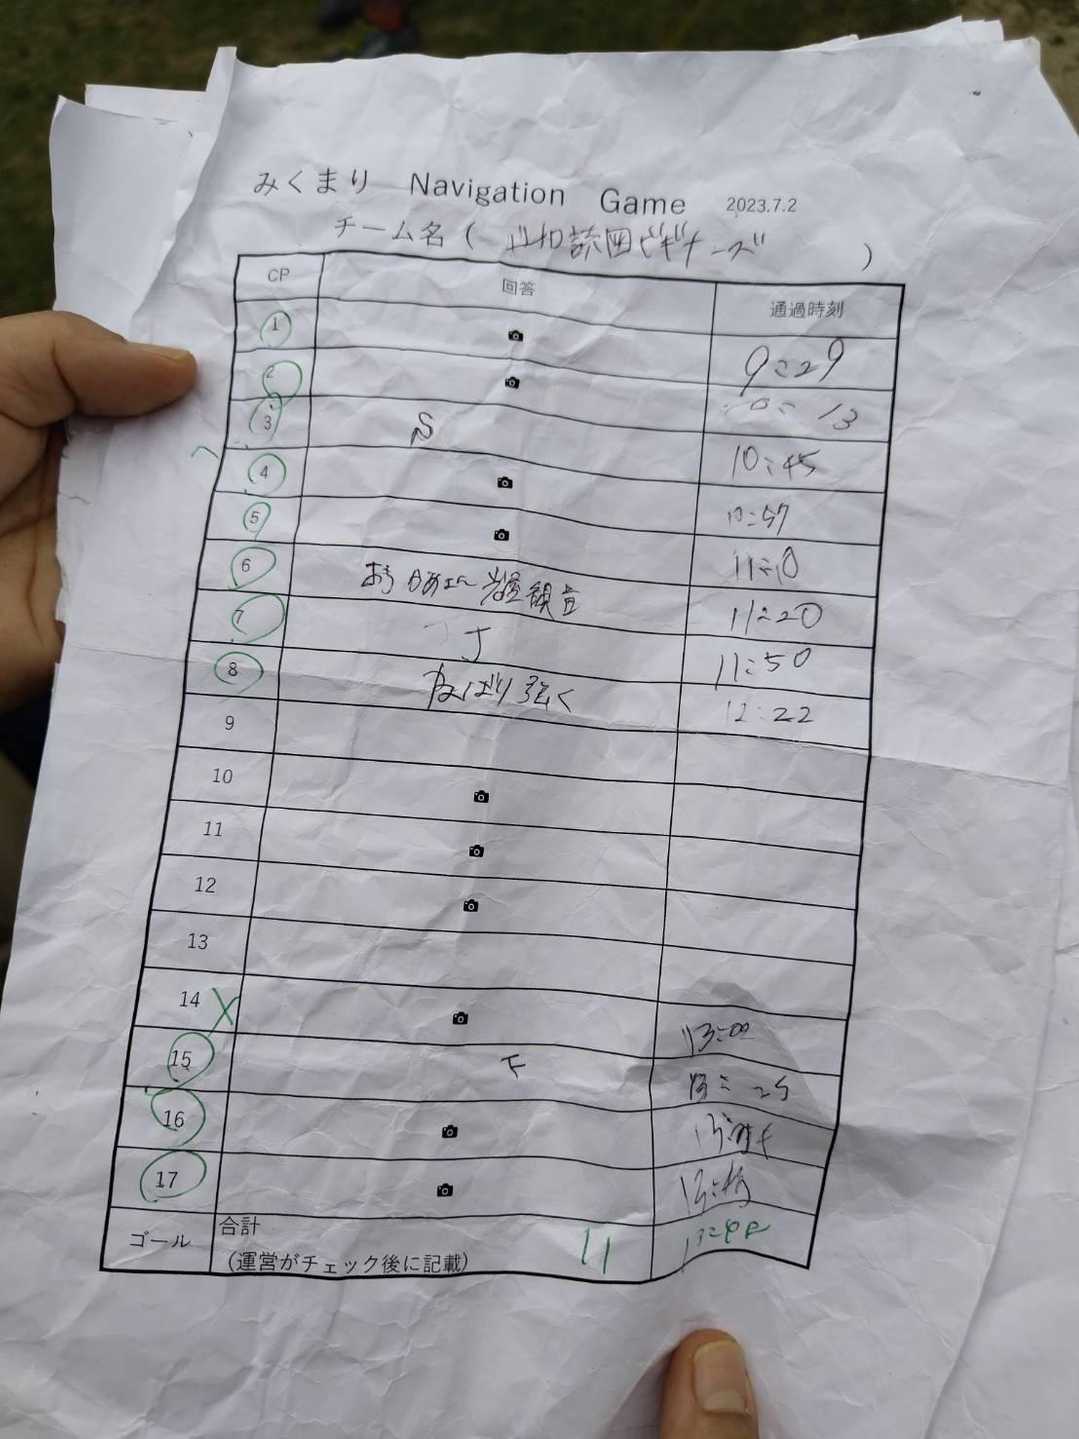 みくまり Navigation Game 2023.7.2
チーム名 ( 読図ビギナーズ )
CP 回答 通過時刻
1 9:29
2 10:13
3 S 10:45
4 10:57
5 11:10
6 11:20
7 J 11:50
8 ねばり強く 12:22
9
10
11
12
13
14 X 13:00
15 下 13:25
16
17
ゴール 合計
(運営がチェック後に記載) 11